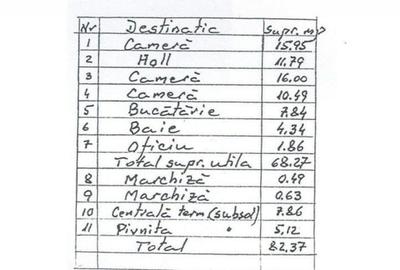 Nr Destinatic Supr. mp
1 Cameră 15,95
2 Holl 11,79
3 Cameră 16.00
4 Cameră 10.49
5 Bucătărie 7.84
6 Baie 4,34
7 Oficiu 1.86
Total supr. utila 68.27
8 Marchiză 0.49
9 Marchiză 0.63
10 Centrală term (subsol) 7.86
11 Pivnita " 5,12
Total 82.37